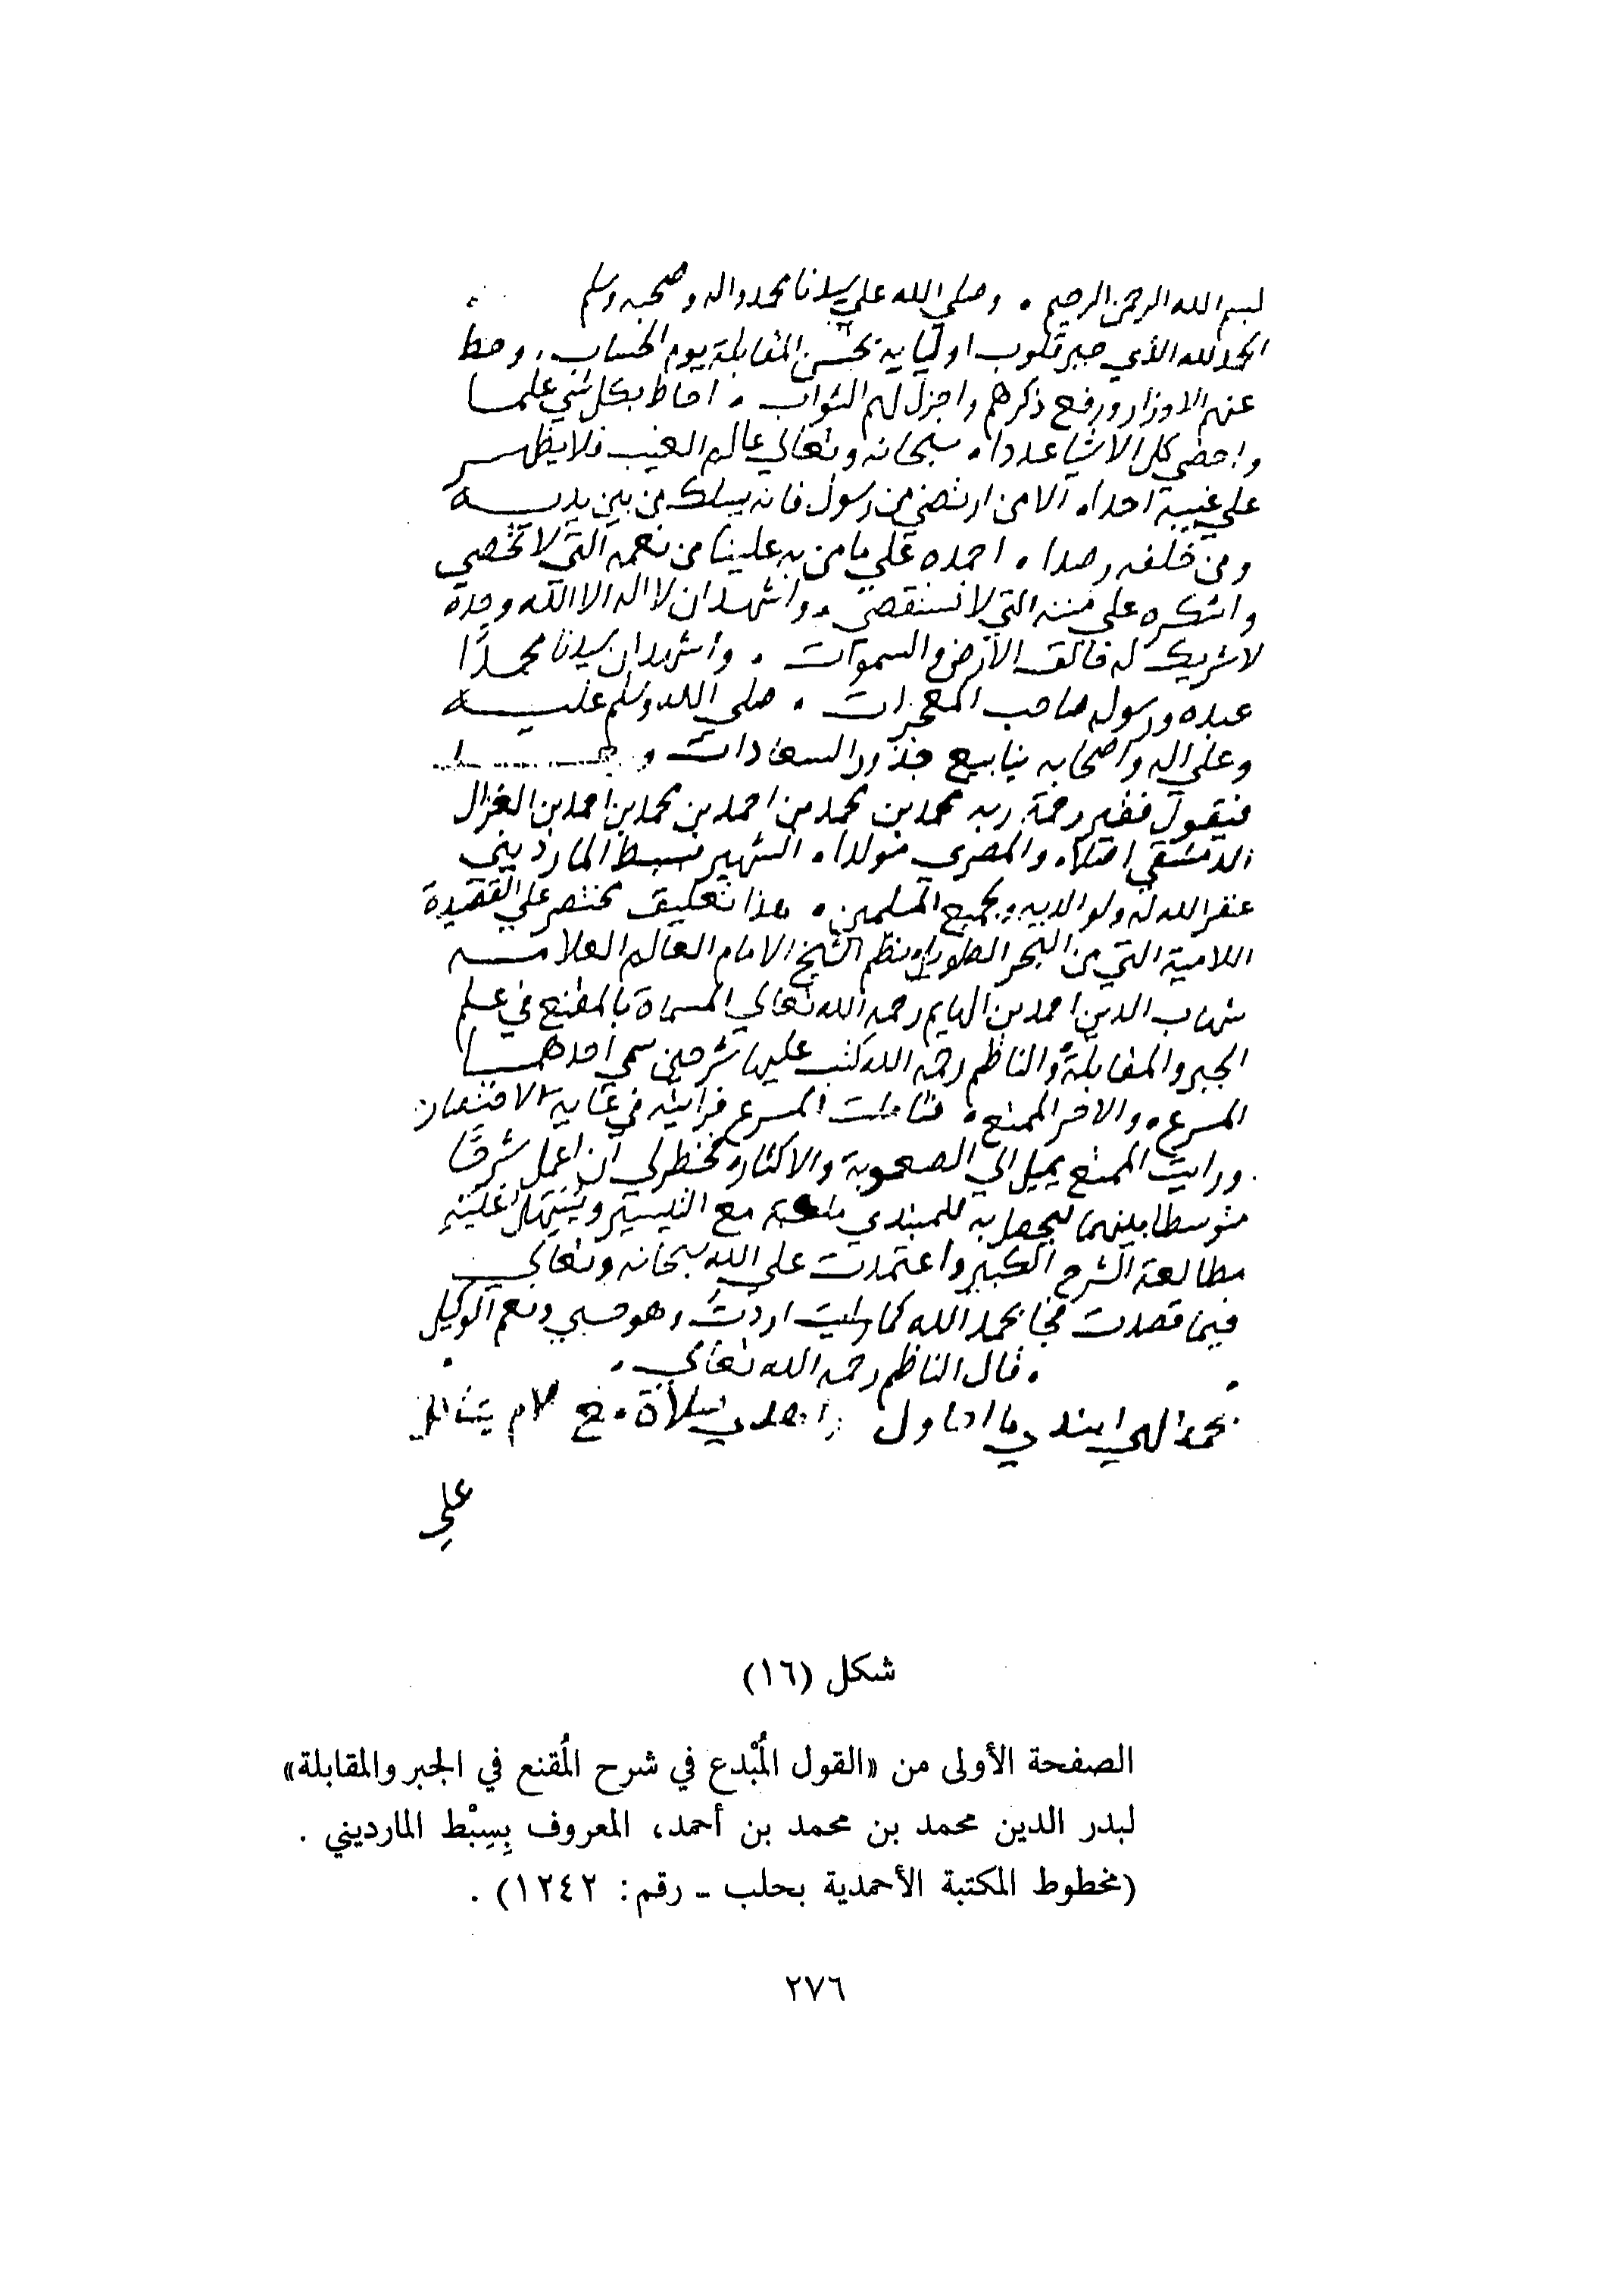 بسم الله الرحمن الرحيم . وصلي الله علي سيدنا محمد واله وصحبه وسلم
الحمد لله الذي جبر قلوب اوليايه بحسن المقابلة يوم الحساب . وحط
عنهم الاوزار ورفع ذكرهم واجزل لهم الثواب . احاط بكل شي علما
واحصي كل الاشيا عددا . سبحانه وتعالي عالم الغيب فلا يظهر
علي غيبه احدا . الا من ارتضي من رسول فانه يسلك من بين يديه
ومن خلفه رصدا . احمده علي ما من به علينا من نعمه التي لا تحصي
واشكره علي مننه التي لا تستقصي . واشهد ان لا اله الا الله وحده
لا شريك له خالق الارض والسموات . واشهد ان سيدنا محمدًا
عبده ورسوله صاحب المعجزات . صلي الله وسلم عليه
وعلي اله واصحابه ينابيع جذور السعادات
فيقول فقير رحمة ربه محمد بن محمد بن احمد بن محمد بن احمد بن الغزال
الدمشقي اصلا . والمصري مولدا . الشهير بسبط المارديني
غفر الله له ولوالديه ولجميع المسلمين . هذا تعليق مختصر علي القصيدة
اللامية التي من البحر الطويل نظم الشيخ الامام العالم العلامه
شهاب الدين احمد بن الهايم رحمه الله تعالي المسماة بالمقنع في علم
الجبر والمقابلة والناظم رحمه الله كتب عليها شرحين سمي احدهما
المسرع . والاخر الممتع . فتاملت المسرع فرايته في غاية الاختصار
ورايت الممتع يميل الي الصعوبة والاكثار . فخطر لي ان اعمل شرحًا
متوسطا بينهما ليحصل به للمبتدي مع التيسير ويسهل عليه
مطالعة الشرح الكبير واعتمدت علي الله سبحانه وتعالي
فيما قصدت فجا بحمد الله كما رايت اردت وهو حسبي ونعم الوكيل
. قال الناظم رحمه الله تعالي .
بحمد الهي ابتدي ما احاول واهدي صلاة مع سلام
علي
شكل (١٦)
الصفحة الأولى من «القول المُبْدع في شرح المُقنع في الجبر والمقابلة»
لبدر الدين محمد بن محمد بن أحمد، المعروف بِسِبْط المارديني .
(مخطوط المكتبة الأحمدية بحلب - رقم: ١٢٤٢) .
٢٧٦